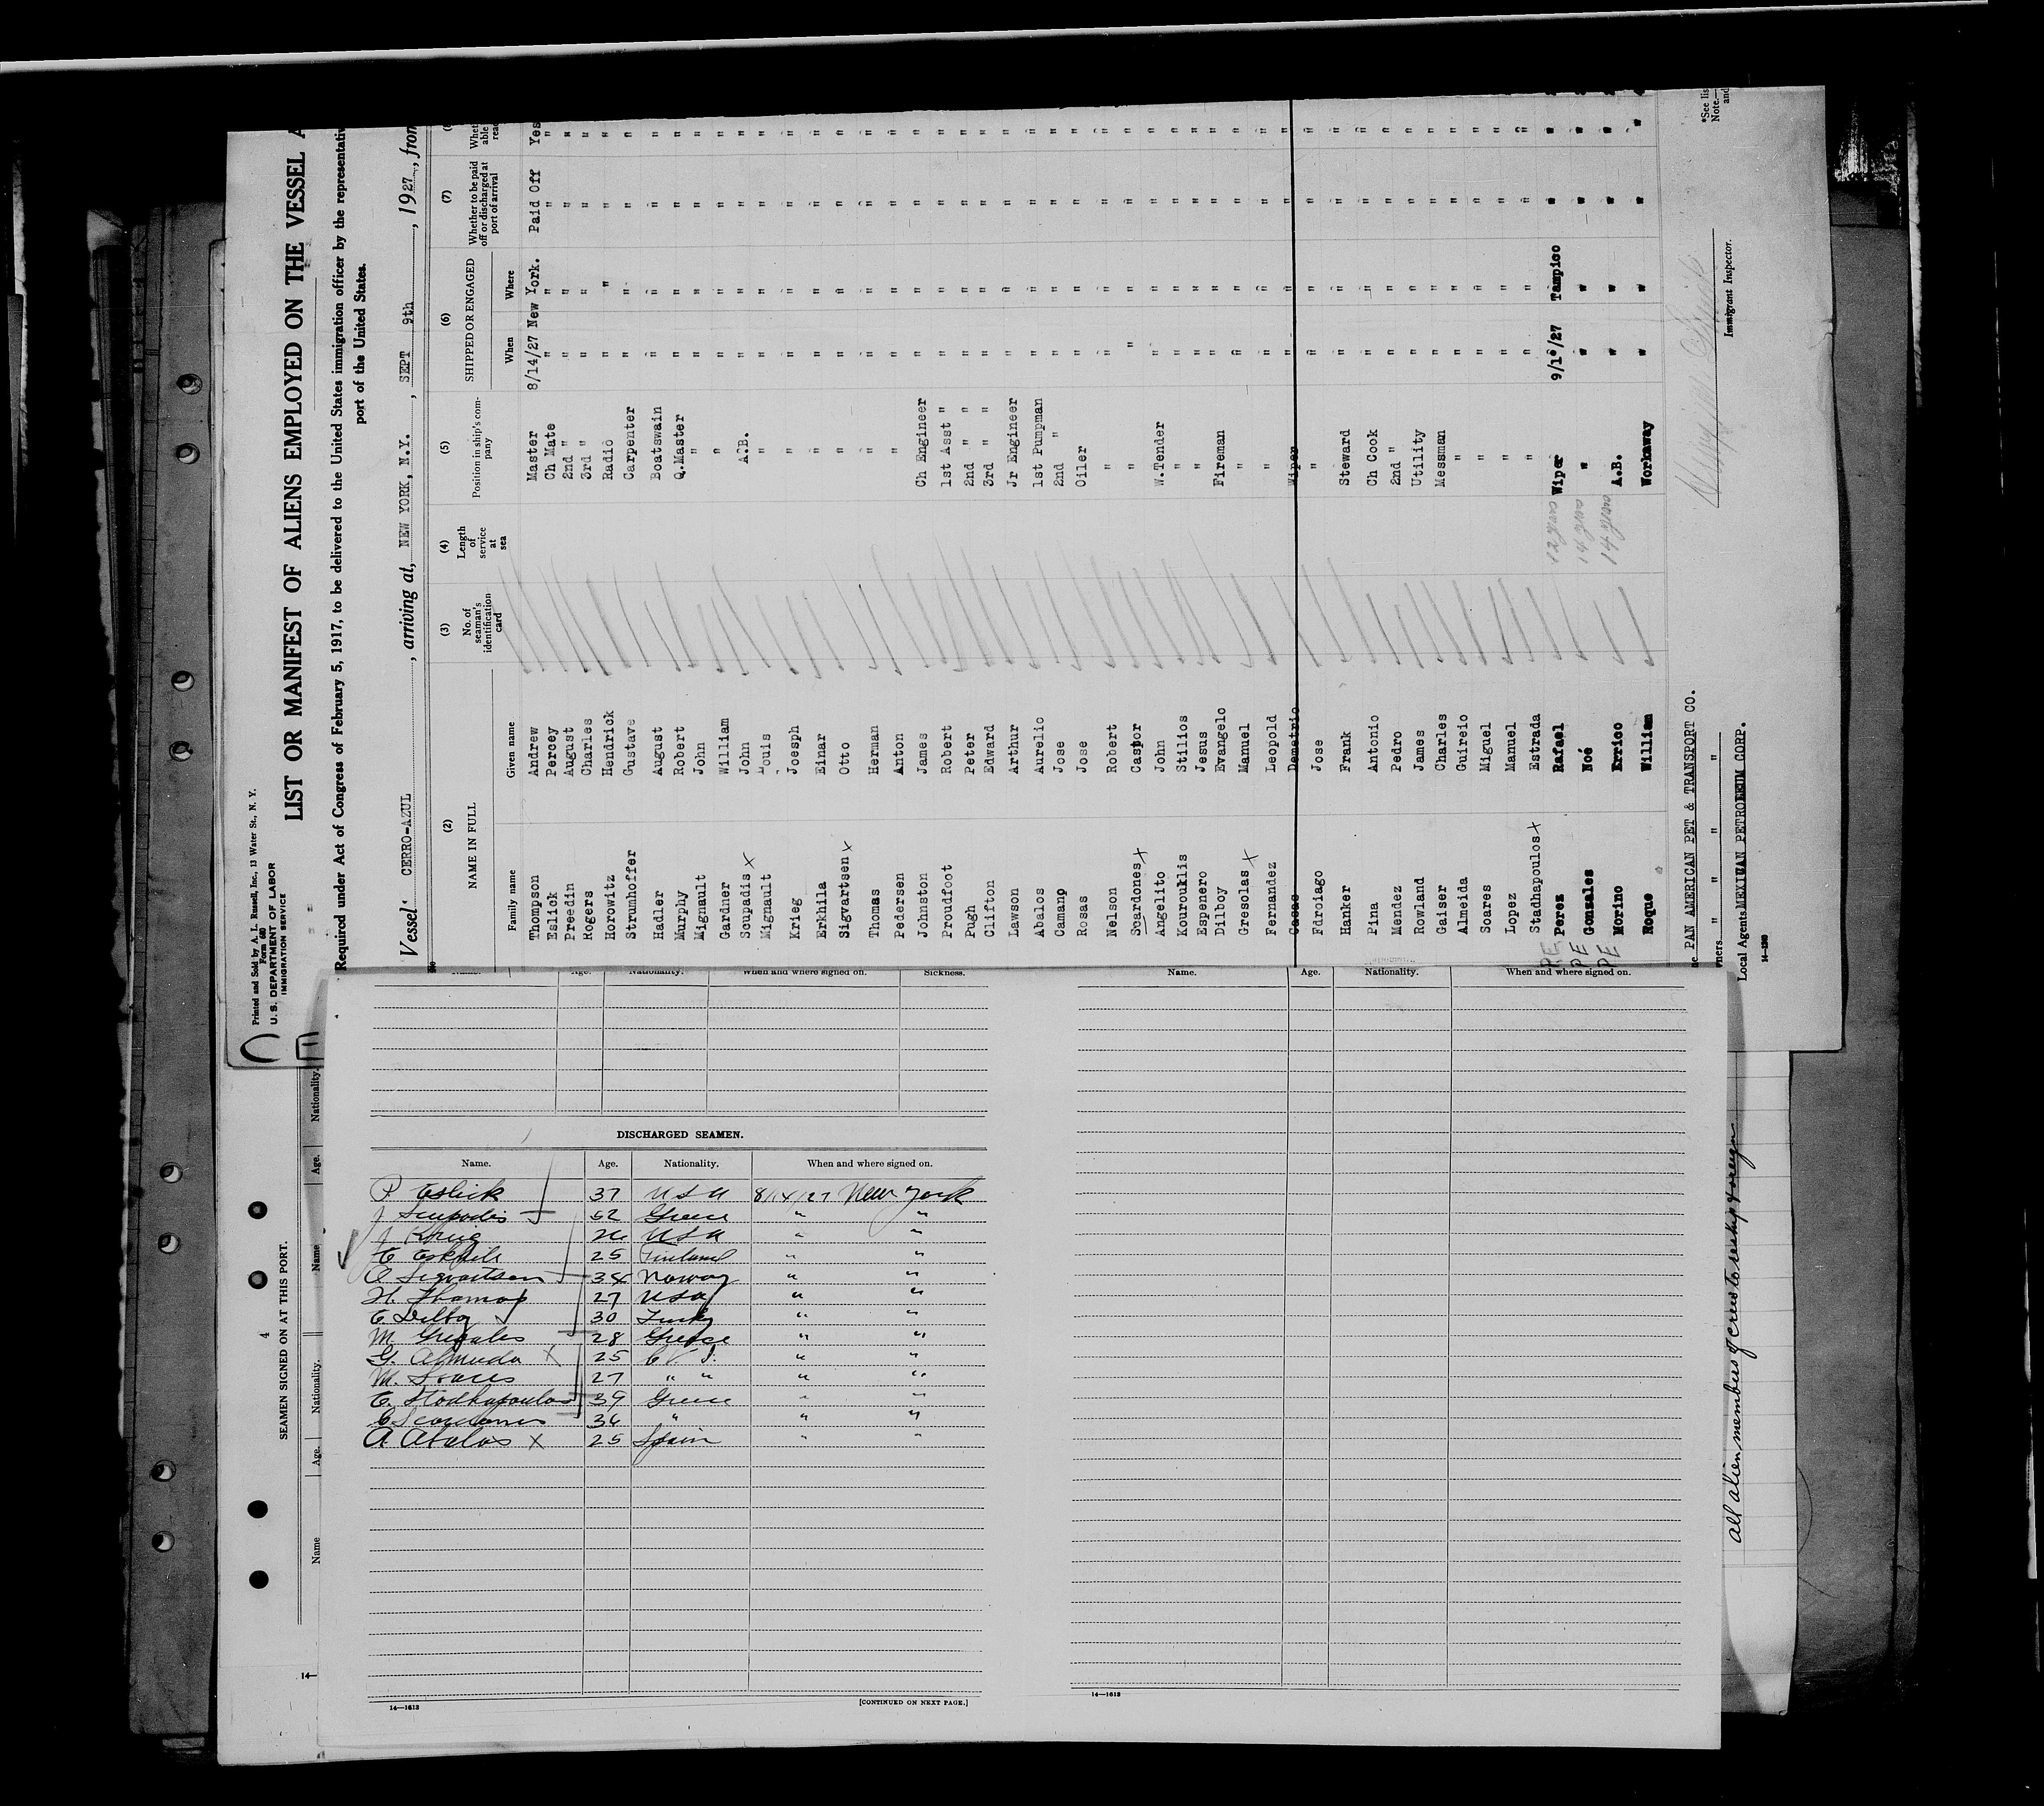 Printed and Sold by A. L. Russell, Inc., 13 Water St., N. Y.
Form 680
U. S. DEPARTMENT OF LABOR
IMMIGRATION SERVICE
LIST OR MANIFEST OF ALIENS EMPLOYED ON THE VESSEL A
Required under Act of Congress of February 5, 1917, to be delivered to the United States immigration officer by the representativ
port of the United States.
Vessel CERRO-AZUL, arriving at, NEW YORK, N.Y., SEPT 9th, 1927, from
(2) (3) (4) (5) (6) (7)
NAME IN FULL
Family name Given name
No. of seaman's identification card
Length of service at sea
Position in ship's company
SHIPPED OR ENGAGED
When Where
Whether to be paid off or discharged at port of arrival
Thompson Andrew Master 8/14/27 New York. Paid Off Yes
Eslick Percey Ch Mate " " " "
Preedin August 2nd " " " " "
Rogers Charles 3rd " " " " "
Horowitz Hendrick Radio " " " "
Strumhoffer Gustave Carpenter " " " "
Hadler August Boatswain " " " "
Murphy Robert Q.Master " " " "
Mignault John " " " " "
Gardner William " " " " "
Scupadis X John A.B. " " " "
Mignault Louis " " " " "
Krieg Joesph " " " " "
Erkhila Einar " " " " "
Sigvartsen X Otto " " " " "
Thomas Herman " " " " "
Pedersen Anton " " " " "
Johnston James Ch Engineer " " " "
Proudfoot Robert 1st Asst " " " " "
Pugh Peter 2nd " " " " " "
Clifton Edward 3rd " " " " " "
Lawson Arthur Jr Engineer " " " "
Abalos Aurelio 1st Pumpman " " " "
Camano Jose 2nd " " " " "
Rosas Jose Oiler " " " "
Nelson Robert " " " " "
Scardones X Castor " " " " "
Angelito John W.Tender " " " "
Kourouklis Stilios " " " " "
Espenero Jesus " " " " "
Dilboy Evangelo Fireman " " " "
Gresolas X Manuel " " " " "
Fernandez Leopold " " " " "
Casas Demetrio Wiper " " " "
Fdroiago Jose " " " " "
Hanker Frank Steward " " " "
Pina Antonio Ch Cook " " " "
Mendez Pedro 2nd " " " " "
Rowland James Utility " " " "
Gaiser Charles Messman " " " "
Almeida Guireio " " " " "
Soares Miguel " " " " "
Lopez Manuel " " " " "
Stadhapoulos X Estrada " " " " "
PE Perez Rafael 12 years Wiper Tampico " "
PE Gonzales Noé 14 years " " " " "
PE Morino Errico 14 years A.B. " " " "
Roque William Workaway " " " "
PAN AMERICAN PET & TRANSPORT CO.
Owners " " " "
Local Agents MEXICAN PETROLEUM CORP.
14—1240
Immigrant Inspector.
*See lis
Note.—
and
Name. Age. Nationality. When and where signed on. Sickness.
Name. Age. Nationality. When and where signed on.
DISCHARGED SEAMEN.
Name. Age. Nationality. When and where signed on.
P Eslick 37 USA 8/14/27 New York
J Scupadis 52 Greece " "
J Krieg 26 USA " "
E Erkhila 25 Finland " "
O Sigvartsen 34 Norway " "
H. Thomas 27 USA " "
E Dilboy 30 Turkey " "
M. Gresolas 28 Greece " "
G. Almeida X 25 C.V.I. " "
M. Soares 27 " " " "
E. Stadhapoulos 39 Greece " "
C Scardones 36 " " "
A Abalos X 25 Spain " "
14—1613
[CONTINUED ON NEXT PAGE.]
14—1613
4
SEAMEN SIGNED ON AT THIS PORT.
Name Age. Nationality. Name Age. Nationality.
14—
all alien members of crew to reship foreign